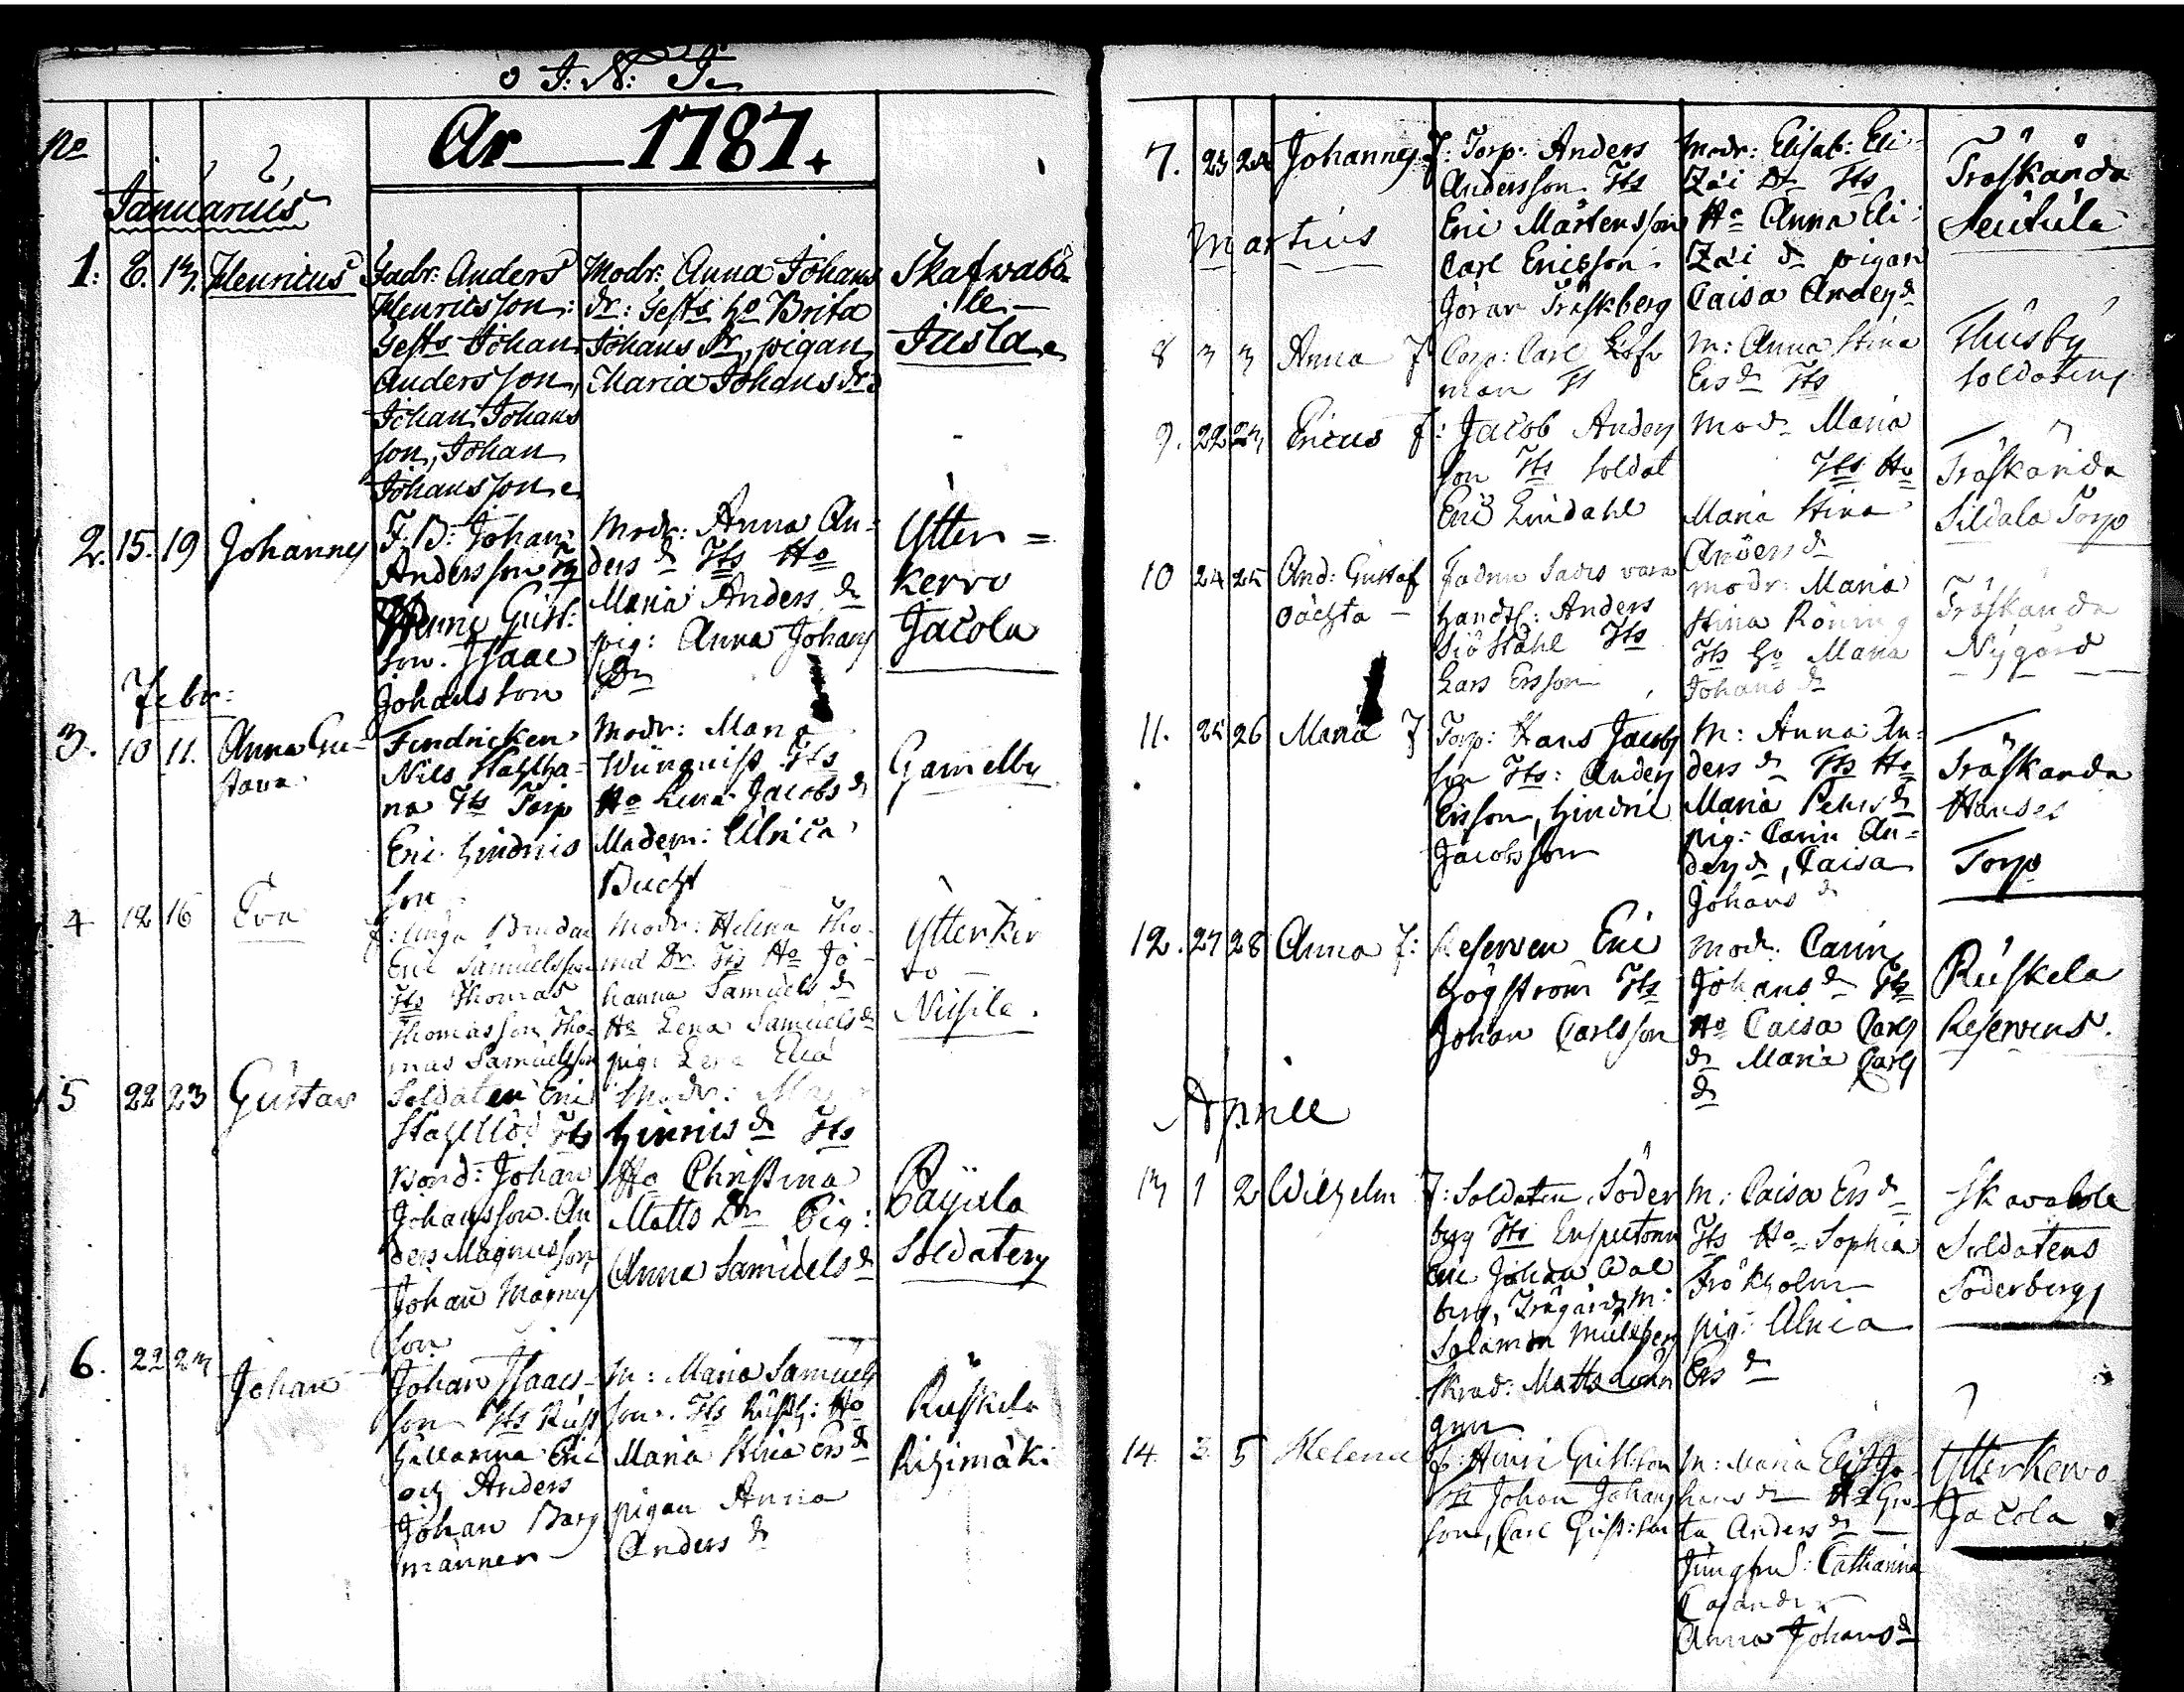 J: N: J:
No
Ar 1787.
Januarius
1: 8. 13. Henricus
Fadr: Anders
Henricsson:
Gests Johan
Andersson,
Johan Johans
son, Johan
Johansson
Modr: Anna Johans
dr: Gests ho Brita
Johans Dr, pigan
Maria Johans dr
Skafwabö
le
Jusla
2. 15. 19 Johannes
F: B: Johan
Andersson
Henric Gust:
son. Isaac
Johansson
Modr: Anna An-
ders dr Hs Ho
Maria Anders dr
pig: Anna Johans
Dr
Ytter =
kervo
Jacola
Febr:
3. 10 11. Anna Gu-
stava
Fendricken
Nils Stahlha-
na Hs Torp
Eric Hindrics
son
Modr: Maria
Hs
Ho Lena Jacobs dr
Madem: Ulrica
Bucht
Gamelby
4 12 16 Eva
f: unga Bondan
Eric Samuelsson
Hs Thomas
Thomasson Tho-
mas Samuelsson
Modr: Helena Tho-
mæ Dr. Hs Ho Jo-
hanna Samuels dr
Ho Lena Samuels dr
pig: Lena Eliæ
Ytterker
vo
Nissile.
5 22 23 Gustav
Soldaten Eric
Hs
Bond: Johan
Johansson. An
ders Magnusson
Johan Magnus
son
Modr: Ma
Hinris dr Hs
Ho Christina
Matts Dr Pig:
Anna Samuels dr
Soldatens
6. 22 23 Johan
Johan Isaacs
son Hs Rusth
Eric
och Anders
Johan Berg
männer
M: Maria Samuels
Hs Rusth: Ho
Maria Stina Ers dr
pigan Anna
Anders dr
Ruskela
Rihimäki
7. 23 24 Johannes
F: Torp: Anders
Andersson Hs
Eric Mårtensson
Carl Ericsson
Jöran Träskberg
Modr: Elisab: Eli-
zæi Dr Hs
Ho Anna Eli-
zæi dr pigan
Caisa Anders dr
Träskända
Seutula
Martius
8 3 3 Anna
F Corp: Carl Löf
man H
M: Anna Stina
Ers dr Hs
Thusby
Soldatens
9. 22 23 Ericus
f: Jacob Anders
son Hs Soldat
Eric Lindahl
Mod. Maria
Hs Ho
Maria Stina
Anders dr
Träskända
Sildala Torp
10 24 25 And: Gustaf
oächta
Fadren Sades vara
Handtl: Anders
Siöstahl Hs
Lars Ersson
modr: Maria
Stina Röning
Hs Ho Maria
Johans dr
Träskända
Nygård
11. 25 26 Maria
F Torp: Hans Jacobs
son Hs: Anders
Ersson, Hindric
Jacobsson
M: Anna An-
ders dr Hs Ho
Maria Pehrs dr
pig: Carin An-
ders dr, Caisa
Johans dr
Träskända
Hanses
Torp
12. 27 28 Anna
F: Reserven Eric
Högström Hs
Johan Carlsson
Modr: Carin
Johans dr Hs
Ho Caisa Carls
dr Maria Carls
dr
Ruskela
Reservens.
Aprill
13 1 2 Wilhelm
F: Soldaten Söder
berg Hs Enspectoren
Eric Johan Wal
berg, Trägårdzm:
Salamon Mullberg
Skrad: Matts Löf
gren
M: Caisa Ers dr
Hs Ho Sophia
Frökholm
pig: Ulrica
Ers dr
Skavaböle
Soldatens
Söderbergs
14. 3 5 Helena
f: Henri Gustsson
Hs Johan Johans
son, Carl Gust:son
M: Maria Elis Jo-
hans dr Ho Gre-
ta Anders dr
Jungfru: Catharina
Cajander
Anna Johans dr
Ytterkervo
Jacola